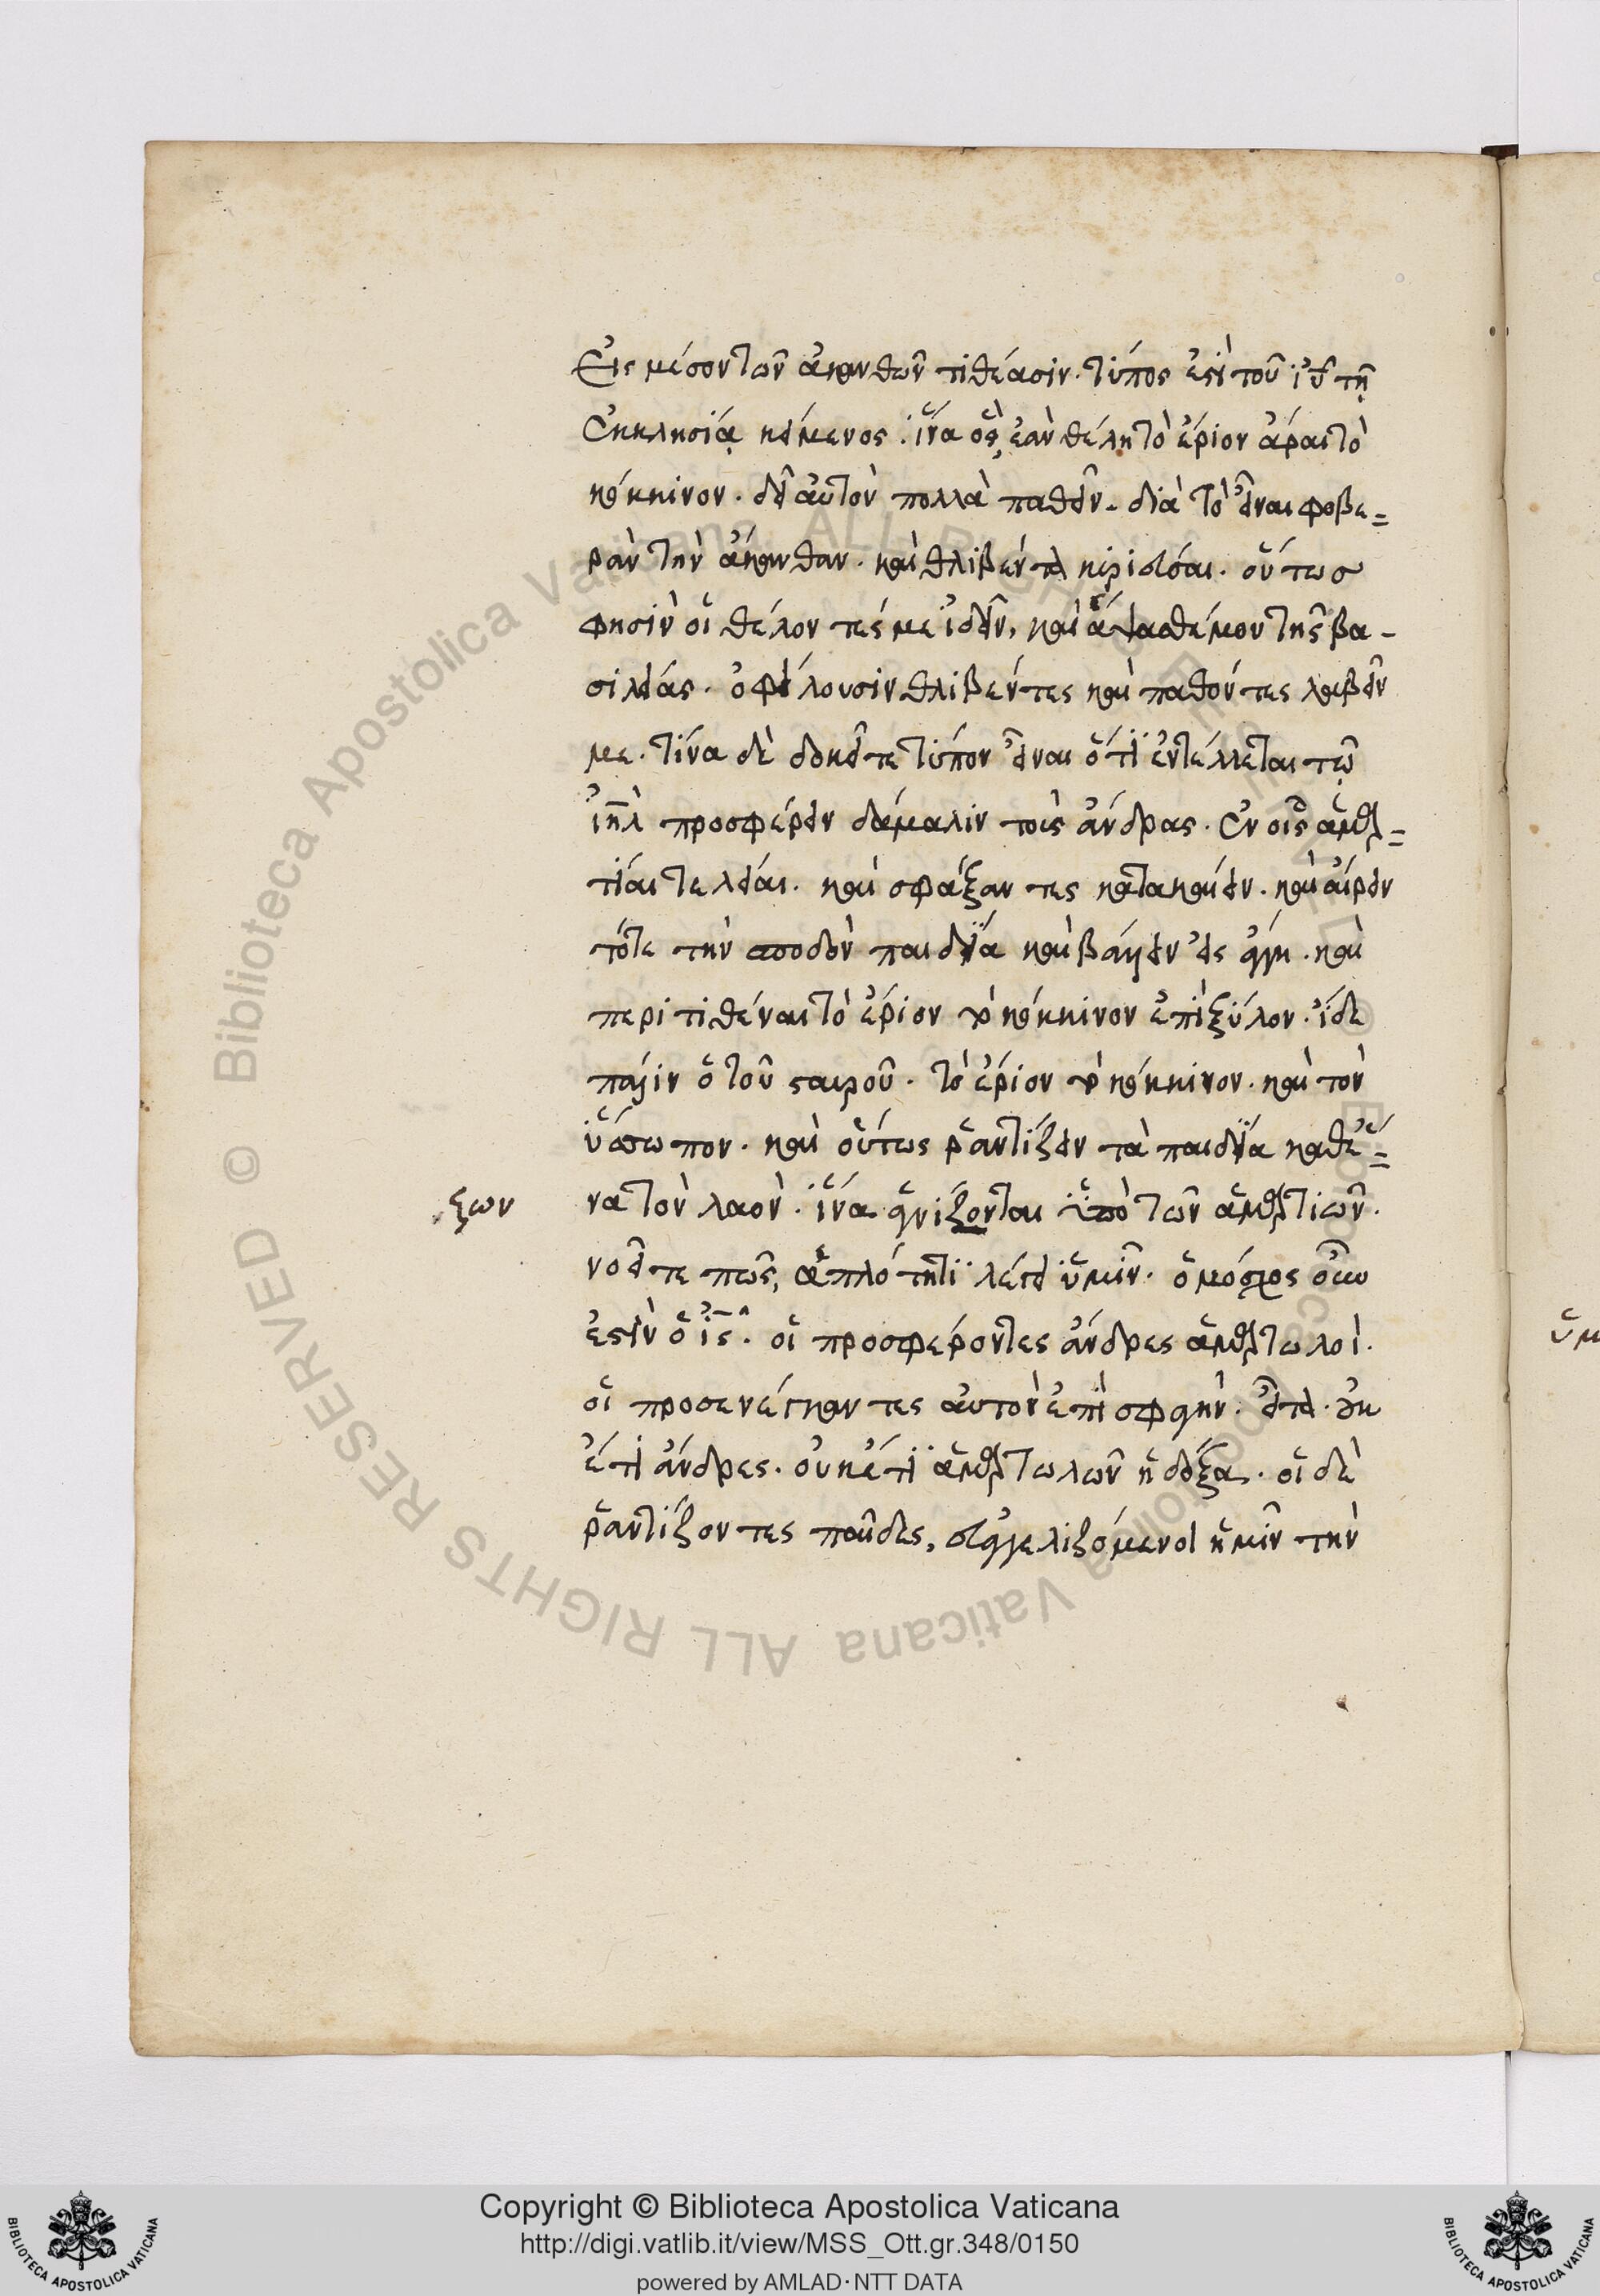 Εἰς μέσον τῶν ἀκανθῶν τιθέασιν. τύπος ἐστὶ τοῦ ἰῦ τῇ
ἐκκλησίᾳ κείμενος. ἵνα ὃς ἐὰν θέλῃ τὸ ἔριον ἆραι τὸ
κόκκινον. δεῖ αὐτὸν πολλὰ παθεῖν. διὰ τὸ εἶναι φοβε=
ρὰν τὴν ἄκανθαν. καὶ θλιβέντα κυριεῦσαι. οὕτως
φησὶν οἱ θέλοντές με ἰδεῖν, καὶ ἅψασθέ μου τῆς βα-
σιλείας. ὀφείλουσιν θλιβέντες καὶ παθόντες λαβεῖν
με. τίνα δὲ δοκεῖτε τύπον εἶναι ὅτι ἐντέλλεται τῷ
ἰηλ προσφέρειν δάμαλιν τοὺς ἄνδρας. ἐν οἷς ἁμαρ=
τίαι τελείαι. καὶ σφάξαντες κατακαίειν. καὶ αἴρειν
τότε τὴν σποδὸν παιδία καὶ βάλλειν εἰς ἄγγη. καὶ
περιτιθέναι τὸ ἔριον τὸ κόκκινον ἐπὶ ξύλον. ἴδε
πάλιν ὁ τοῦ σταυροῦ. τὸ ἔριον τὸ κόκκινον. καὶ τὸν
ὕσσωπον. καὶ οὕτως ῥαντίζειν τὰ παιδία καθ' ἕ=
να τὸν λαὸν. ἵνα ἁγνίζονται ἀπὸ τῶν ἁμαρτιῶν.
ξων
νοεῖτε πῶς, ἁπλότητι λέγει ὑμῖν. ὁ μόσχος οὕτω
ἐστὶν ὁ ἰς. οἱ προσφέροντες ἄνδρες ἁμαρτωλοί.
οἱ προσενέγκαντες αὐτὸν ἐπὶ σφαγήν. εἶτα. οὐκ
έτι ἄνδρες. οὐκέτι ἁμαρτωλῶν ἡ δόξα. οἱ δὲ
ῥαντίζοντες παῖδες, εὐαγγελιζόμενοι ἡμῖν τὴν
ὑμ
Copyright © Biblioteca Apostolica Vaticana
http://digi.vatlib.it/view/MSS_Ott.gr.348/0150
powered by AMLAD·NTT DATA
BIBLIOTECA APOSTOLICA VATICANA
BIBLIOTECA APOSTOLICA VATICANA
© Biblioteca Apostolica Vaticana ALL RIGHTS RESERVED © Biblioteca Apostolica Vaticana ALL RIGHTS RESERVED